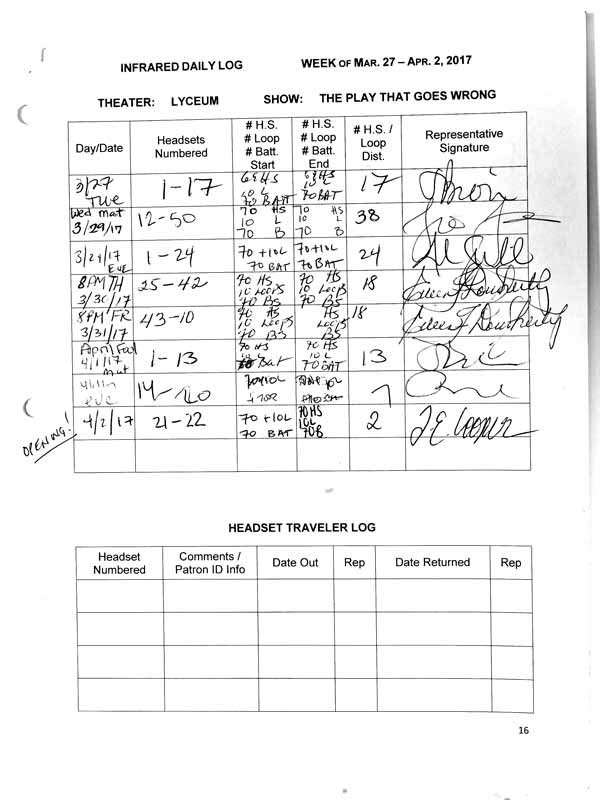 INFRARED DAILY LOG WEEK OF MAR. 27 – APR. 2, 2017
THEATER: LYCEUM SHOW: THE PLAY THAT GOES WRONG
Day/Date Headsets Numbered # H.S. # Loop # Batt. Start # H.S. # Loop # Batt. End # H.S. / Loop Dist. Representative Signature
3/27 TUE 1-17 10 L 70 BATT 10 L 70 BAT 17
Wed mat 3/29/17 12-50 70 HS 10 L 70 B 70 HS 10 L 70 B 38
3/29/17 Eve 1-24 70 +10L 70 BAT 70+10L 70 BAT 24
8PM TH 3/30/17 25-42 70 HS 10 Loops 70 BS 70 HS 10 Loops 70 BS 18 Eileen F Dougherty
8PM FR 3/31/17 43-10 70 HS 10 Loops 70 BS HS Loops BS 18 Eileen F Dougherty
April Fool 4/1/17 mat 1-13 70 HS 10 L Bat 70 HS 10 L 70 BAT 13
eve 14-20 7
OPENING! 4/2/17 21-22 70 +10L 70 BAT 70HS 10L 70B 2 J.E. Cooper
HEADSET TRAVELER LOG
Headset Numbered Comments / Patron ID Info Date Out Rep Date Returned Rep
16